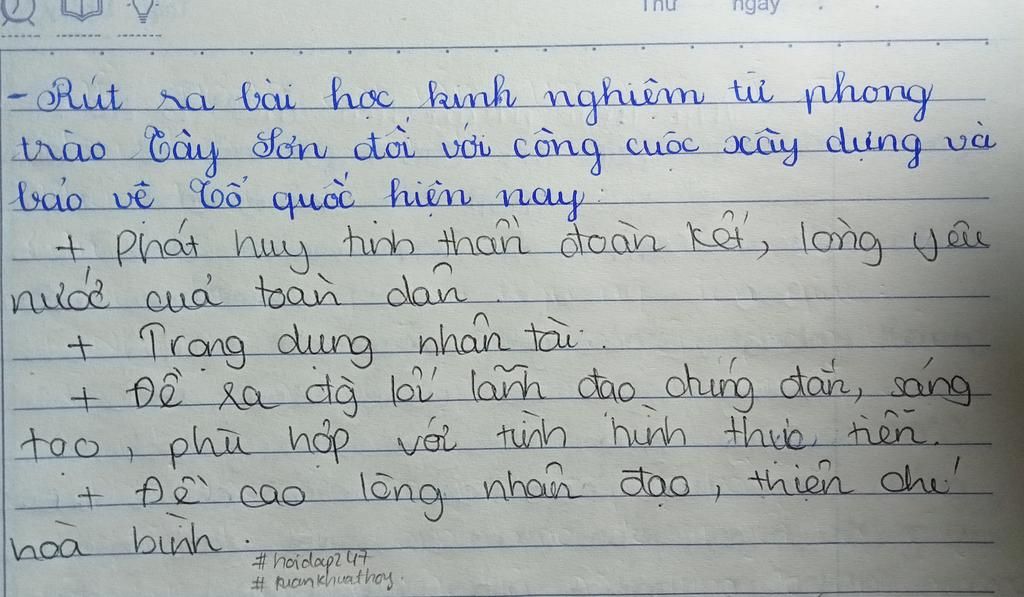 Thứ ngày
- Rút ra bài học kinh nghiệm từ phong
trào Tây Sơn đối với công cuộc xây dựng và
bảo vệ Tổ quốc hiện nay:
+ Phát huy tinh thần đoàn kết, lòng yêu
nước của toàn dân.
+ Trọng dụng nhân tài.
+ Đề ra đg lối lãnh đạo đúng đắn, sáng
tạo, phù hợp với tình hình thực tiễn.
+ Đề cao lòng nhân đạo, thiện chí
hoà bình.
#hoidap247
#xuankhuathoy.